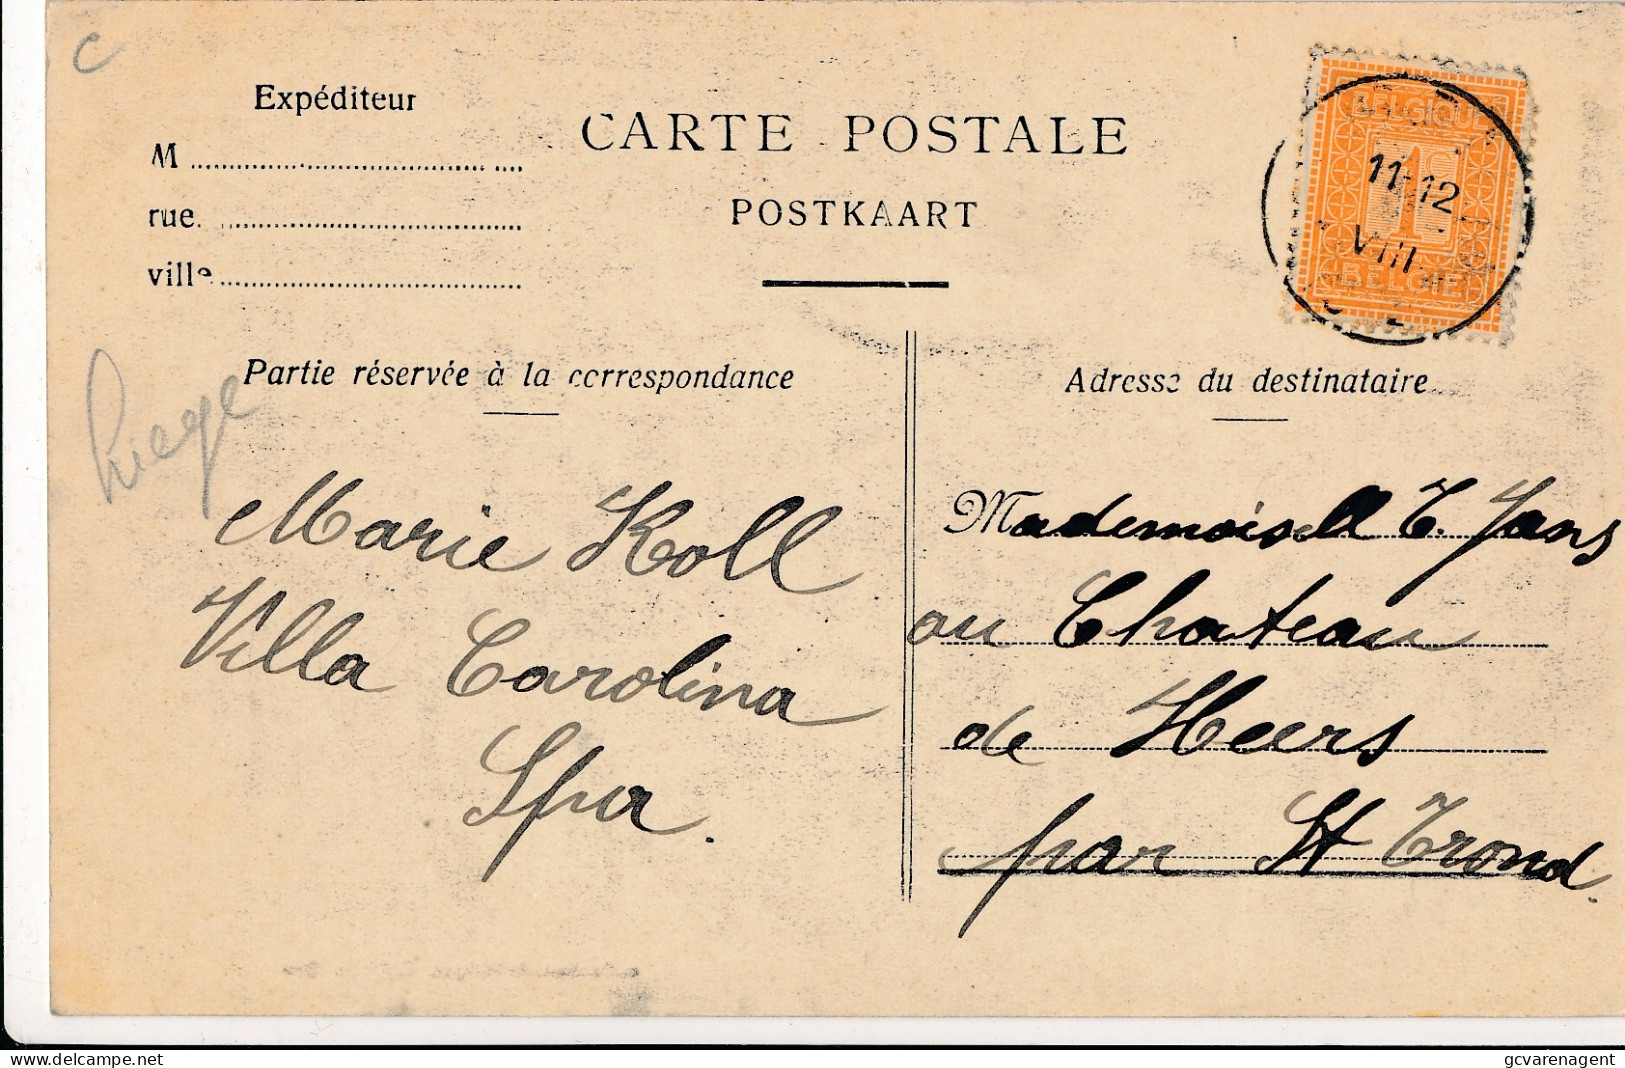 C
Expéditeur
M
rue.
ville
CARTE POSTALE
POSTKAART
BELGIQUE
1
BELGIE
11-12
VIII
Partie réservée à la correspondance
Adresse du destinataire
Liege
Marie Koll
Villa Carolina
Spa.
Mademoisell T. Jans
au Chateau
de Heers
par St Trond.
gcvarenagent